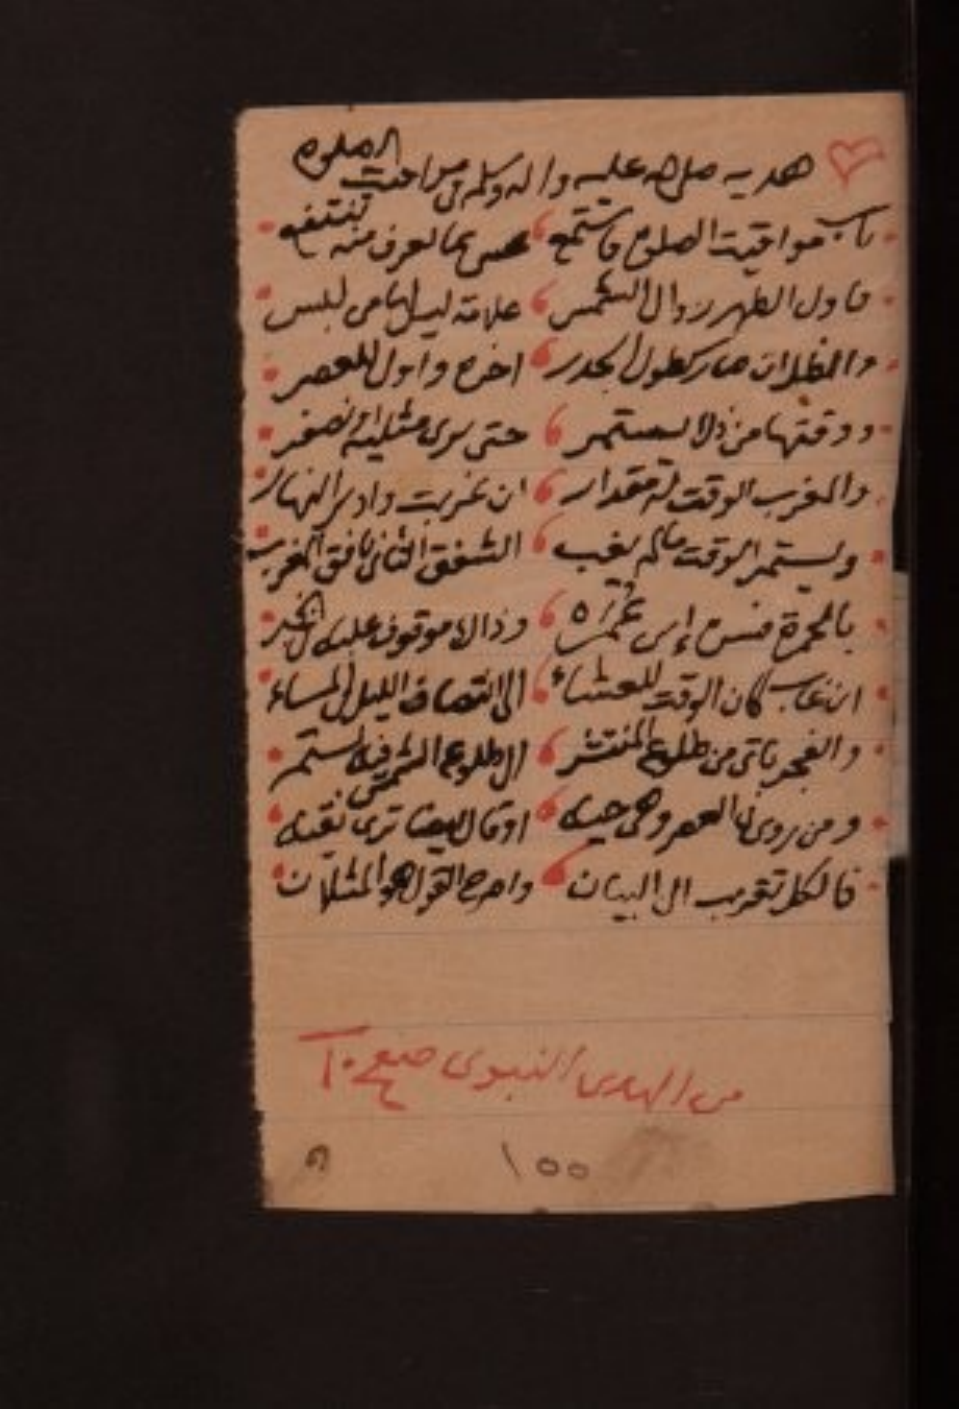 هديه صلى الله عليه واله وسلم في مواقيت الصلوة
باب مواقيت الصلوة فاستمع عسى بما تعرف منه تنتفع
فاول الظهر زوال الشمس علامة ليس لها من لبس
والظل ان صار كطول الجدر اخره واول للعصر
ووقتها من ذلا يستمر حتى يرى مثليه او تصفر
والمغرب الوقت له مقدار ان غربت وادبر النهار
ويستمر الوقت مالم يغب الشفق الثاني بافق المغرب
بالحمرة فسره ابن عمر وذاك موقوف عليه في الخبر
ان غاب كان الوقت للعشاء الى انتصاف الليل في المساء
والفجر ياتي من طلوع المنتشر الى طلوع الشمس فيه يستمر
ومن روى في العصر وهي حيه او قال بيضا ترى نقيه
فالكل تقريب الى البيان واصرح القول هو المثلان
من الهدى النبوى صفح ١٠
١٥٥